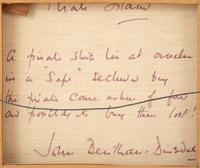 Pirate Island
A pirate ship lies at anchor
in a "safe" secluded bay
the pirates come ashore
and
to bury their loot!
John Bentham-Dinsdale